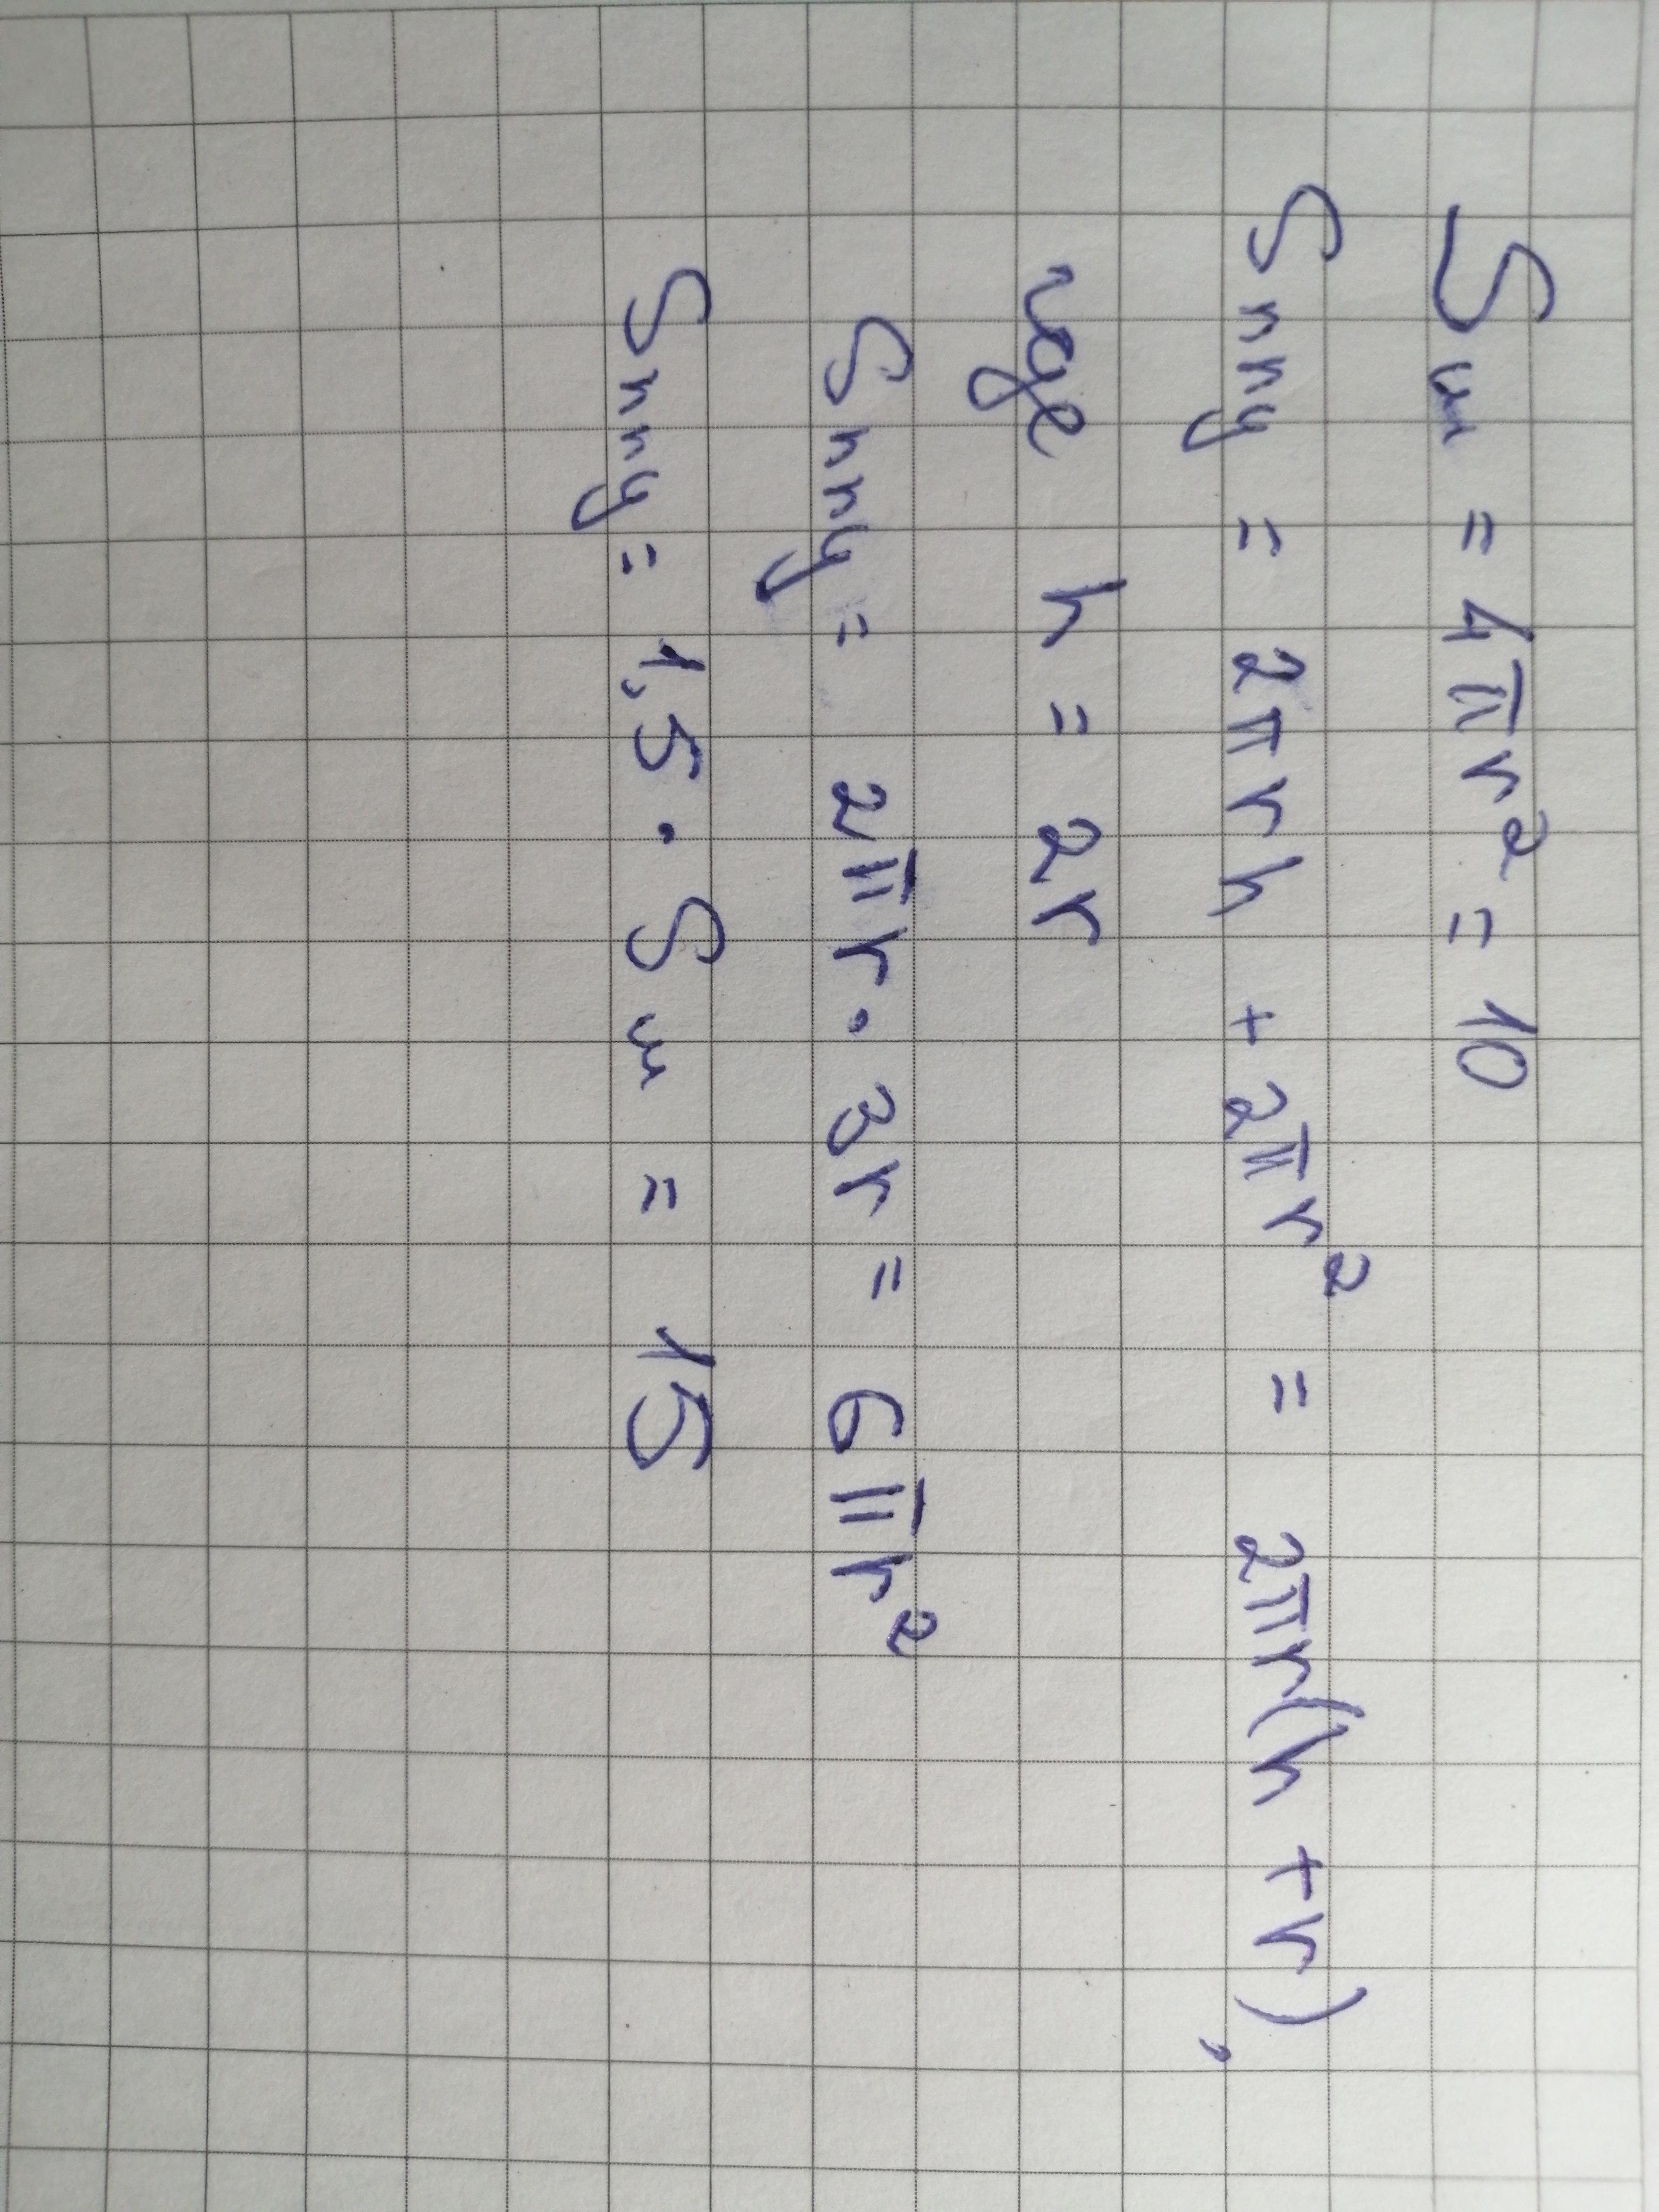 Sш = 4πr² = 10
Sппц = 2πrh + 2πr² = 2πr(h + r),
где h = 2r
Sппц = 2πr · 3r = 6πr²
Sппц = 1,5 · Sш = 15